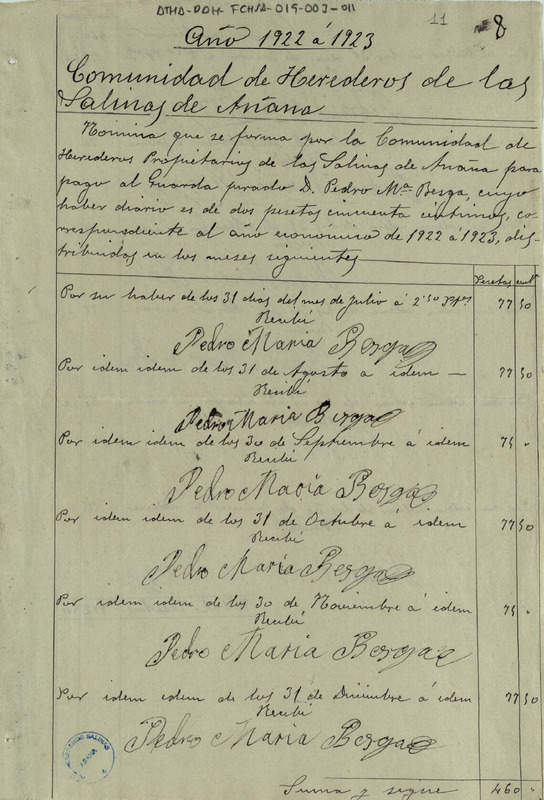 ATHA-DDH-FCHSA-019-003-011
11
8
Año 1922 á 1923
Comunidad de Herederos de las
Salinas de Añana
Nómina que se forma por la Comunidad de
Herederos Propietarios de las Salinas de Añana para
pago al Guarda jurado D. Pedro Mª Berga, cuyo
haber diario es de dos pesetas cincuenta céntimos, co-
rrespondiente al año económico de 1922 á 1923, dis-
tribuidas en los meses siguientes
Pesetas cents
Por su haber de los 31 días del mes de Julio á 2'50 ptas 77 50
Recibí
Pedro Maria Berga
Por idem idem de los 31 de Agosto á idem — 77 50
Recibí
Pedro Maria Berga
Por idem idem de los 30 de Septiembre á idem 75 "
Recibí
Pedro Maria Berga
Por idem idem de los 31 de Octubre á idem 77 50
Recibí
Pedro Maria Berga
Por idem idem de los 30 de Noviembre á idem 75 "
Recibí
Pedro Maria Berga
Por idem idem de los 31 de Diciembre á idem 77 50
Recibí
Pedro Maria Berga
Suma y sigue 460 "